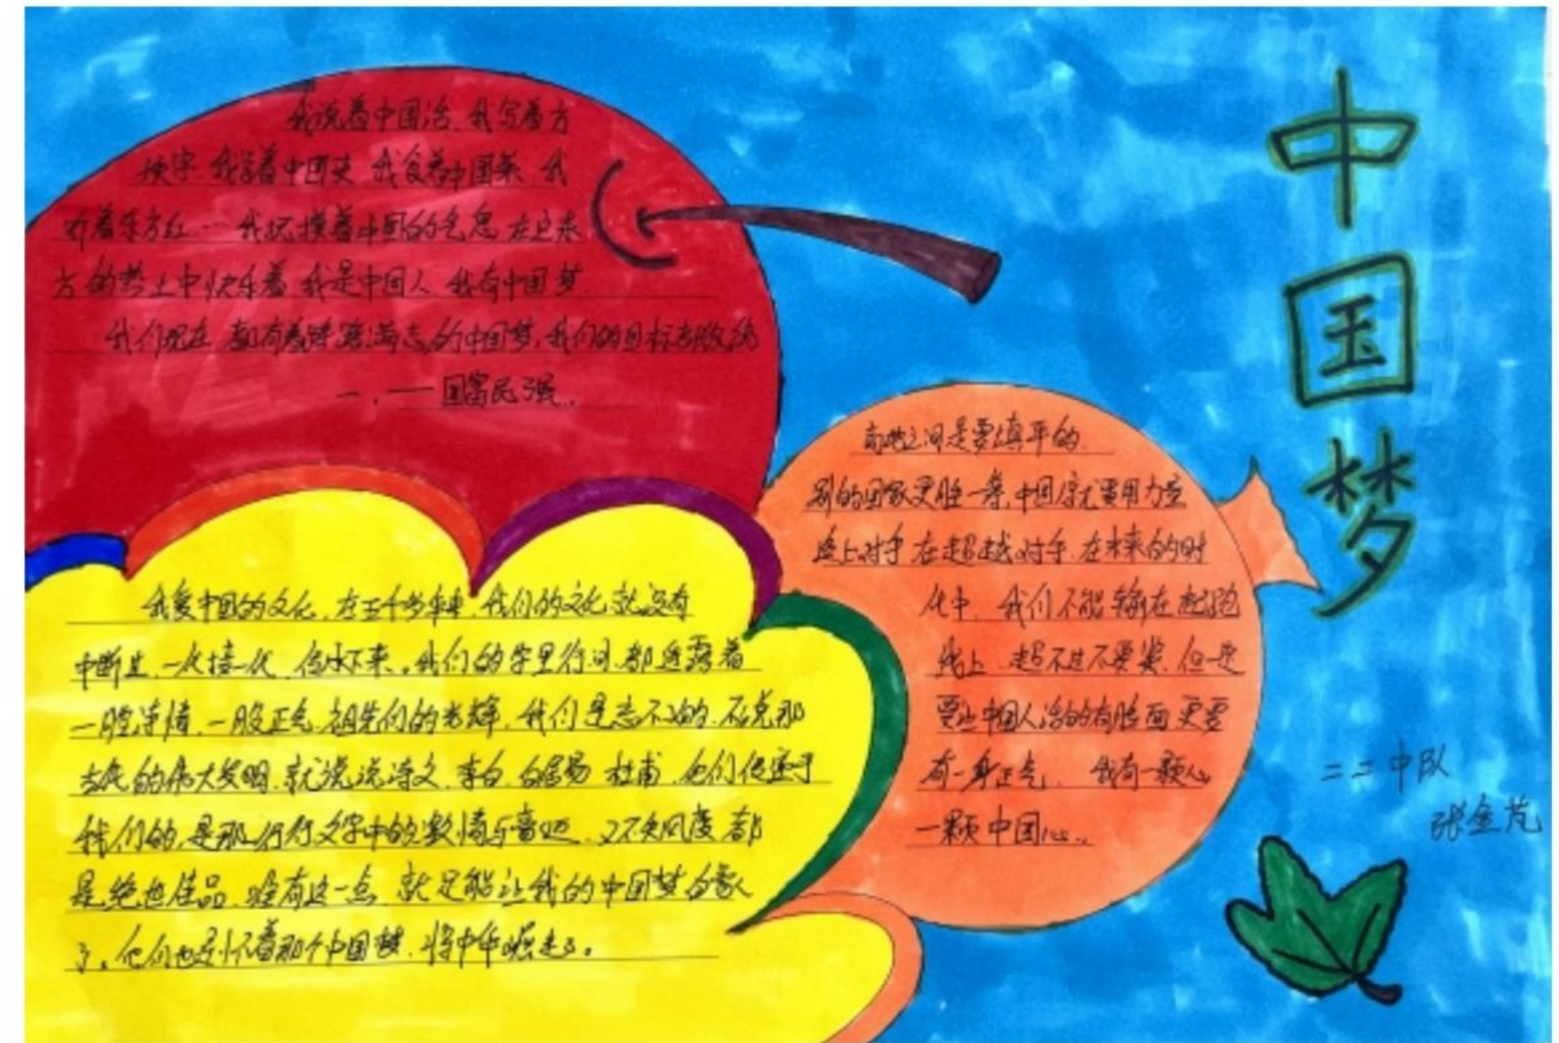 中国梦
我说着中国话,我写着方
块字,我学着中国史,我食着中国菜,我
听着东方红……我抚摸着中国的气息,在这东
方的热土中快乐着,我是中国人,我有中国梦
我们现在,都有着踌躇满志的中国梦,我们的目标都很统
一,——国富民强。
我爱中国的文化,在五千年中,我们的文化就没有
中断过,一代接一代,传承下来。我们的字里行间都透露着
一腔诗情,一股正气,祖先们的光辉,我们是忘不了的,不说那
古代的伟大发明,就说说诗文,李白,白居易,杜甫,他们传承于
我们的,是那行行文字中的激情与豪迈,又不失风度,都
是绝世佳品,唯有这一点,就足能让我的中国梦自豪
了。他们也是怀着那个中国梦,将中华崛起了。
之间是要填平的
别的国家更胜一筹,中国就要用力量
追上对手,在超越对手,在未来的时
代中,我们不能输在起跑
线上,超不过不要紧,但一定
要让中国人活的有脸面,更要
有一身正气,我有一颗心
一颗中国心。
二二中队
张金芃